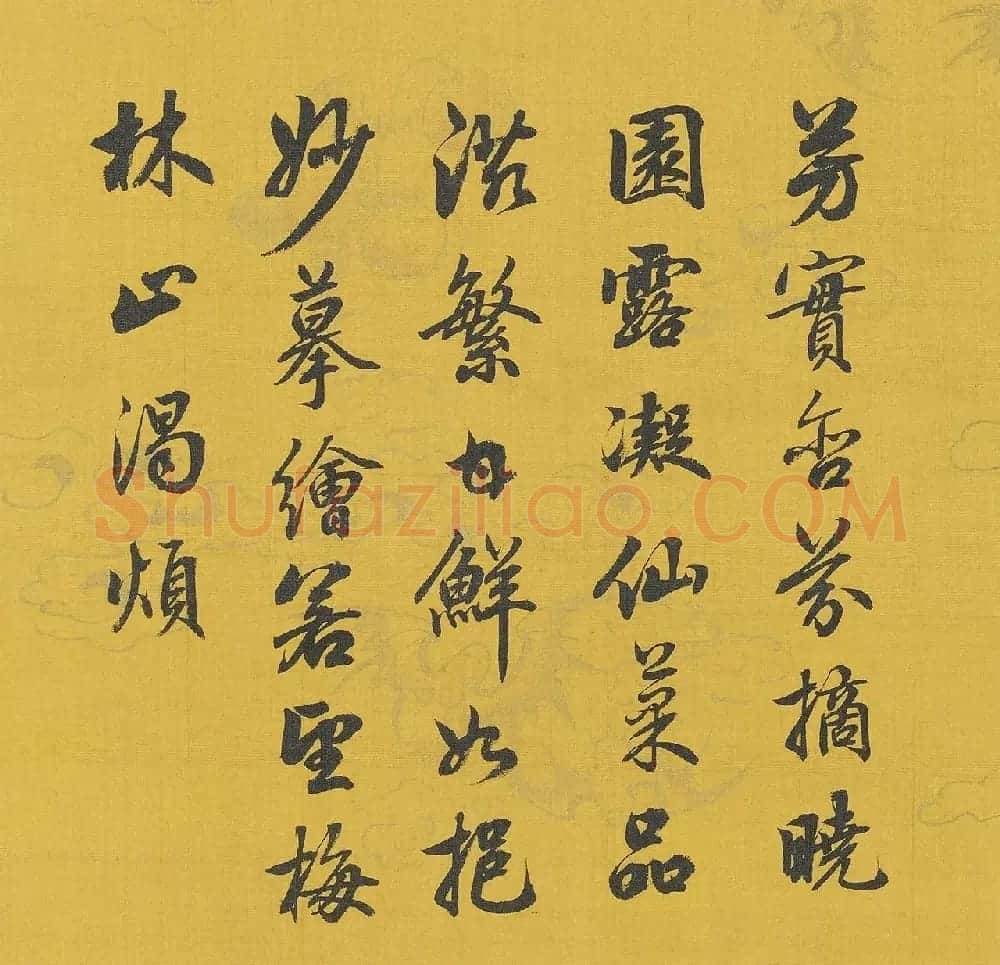 芳實含芬摘曉
園露凝仙菓品
滋繁甘鮮如挹
妙摹繪若望梅
林止渴煩
Shufaziliao.COM